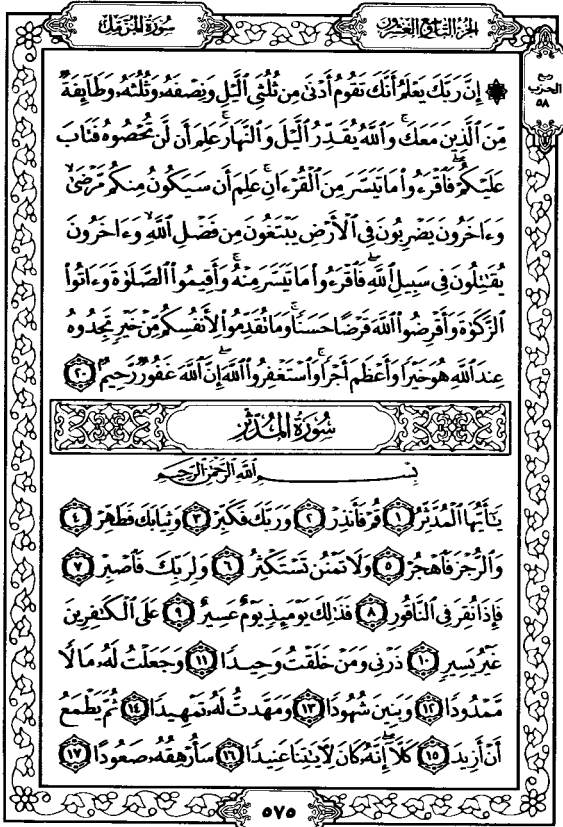 سُورَةُ المُزَّمِّل
الجُزْءُ التَّاسِعُ وَالعِشْرُونَ
ربع
الحزب
٥٨
۞ إِنَّ رَبَّكَ يَعْلَمُ أَنَّكَ تَقُومُ أَدْنَىٰ مِن ثُلُثَىِ ٱلَّيْلِ وَنِصْفَهُۥ وَثُلُثَهُۥ وَطَآئِفَةٌ
مِّنَ ٱلَّذِينَ مَعَكَ ۚ وَٱللَّهُ يُقَدِّرُ ٱلَّيْلَ وَٱلنَّهَارَ ۚ عَلِمَ أَن لَّن تُحْصُوهُ فَتَابَ
عَلَيْكُمْ ۖ فَٱقْرَءُوا۟ مَا تَيَسَّرَ مِنَ ٱلْقُرْءَانِ ۚ عَلِمَ أَن سَيَكُونُ مِنكُم مَّرْضَىٰ ۙ
وَءَاخَرُونَ يَضْرِبُونَ فِى ٱلْأَرْضِ يَبْتَغُونَ مِن فَضْلِ ٱللَّهِ ۙ وَءَاخَرُونَ
يُقَٰتِلُونَ فِى سَبِيلِ ٱللَّهِ ۖ فَٱقْرَءُوا۟ مَا تَيَسَّرَ مِنْهُ ۚ وَأَقِيمُوا۟ ٱلصَّلَوٰةَ وَءَاتُوا۟
ٱلزَّكَوٰةَ وَأَقْرِضُوا۟ ٱللَّهَ قَرْضًا حَسَنًا ۚ وَمَا تُقَدِّمُوا۟ لِأَنفُسِكُم مِّنْ خَيْرٍ تَجِدُوهُ
عِندَ ٱللَّهِ هُوَ خَيْرًا وَأَعْظَمَ أَجْرًا ۚ وَٱسْتَغْفِرُوا۟ ٱللَّهَ ۖ إِنَّ ٱللَّهَ غَفُورٌ رَّحِيمٌۢ ٢٠
سُورَةُ المُدَّثِّرِ
بِسْمِ ٱللَّهِ ٱلرَّحْمَٰنِ ٱلرَّحِيمِ
يَٰٓأَيُّهَا ٱلْمُدَّثِّرُ ١ قُمْ فَأَنذِرْ ٢ وَرَبَّكَ فَكَبِّرْ ٣ وَثِيَابَكَ فَطَهِّرْ ٤
وَٱلرُّجْزَ فَٱهْجُرْ ٥ وَلَا تَمْنُن تَسْتَكْثِرُ ٦ وَلِرَبِّكَ فَٱصْبِرْ ٧
فَإِذَا نُقِرَ فِى ٱلنَّاقُورِ ٨ فَذَٰلِكَ يَوْمَئِذٍ يَوْمٌ عَسِيرٌ ٩ عَلَى ٱلْكَٰفِرِينَ
غَيْرُ يَسِيرٍ ١٠ ذَرْنِى وَمَنْ خَلَقْتُ وَحِيدًا ١١ وَجَعَلْتُ لَهُۥ مَالًا
مَّمْدُودًا ١٢ وَبَنِينَ شُهُودًا ١٣ وَمَهَّدتُّ لَهُۥ تَمْهِيدًا ١٤ ثُمَّ يَطْمَعُ
أَنْ أَزِيدَ ١٥ كَلَّآ ۖ إِنَّهُۥ كَانَ لِءَايَٰتِنَا عَنِيدًا ١٦ سَأُرْهِقُهُۥ صَعُودًا ١٧
٥٧٥